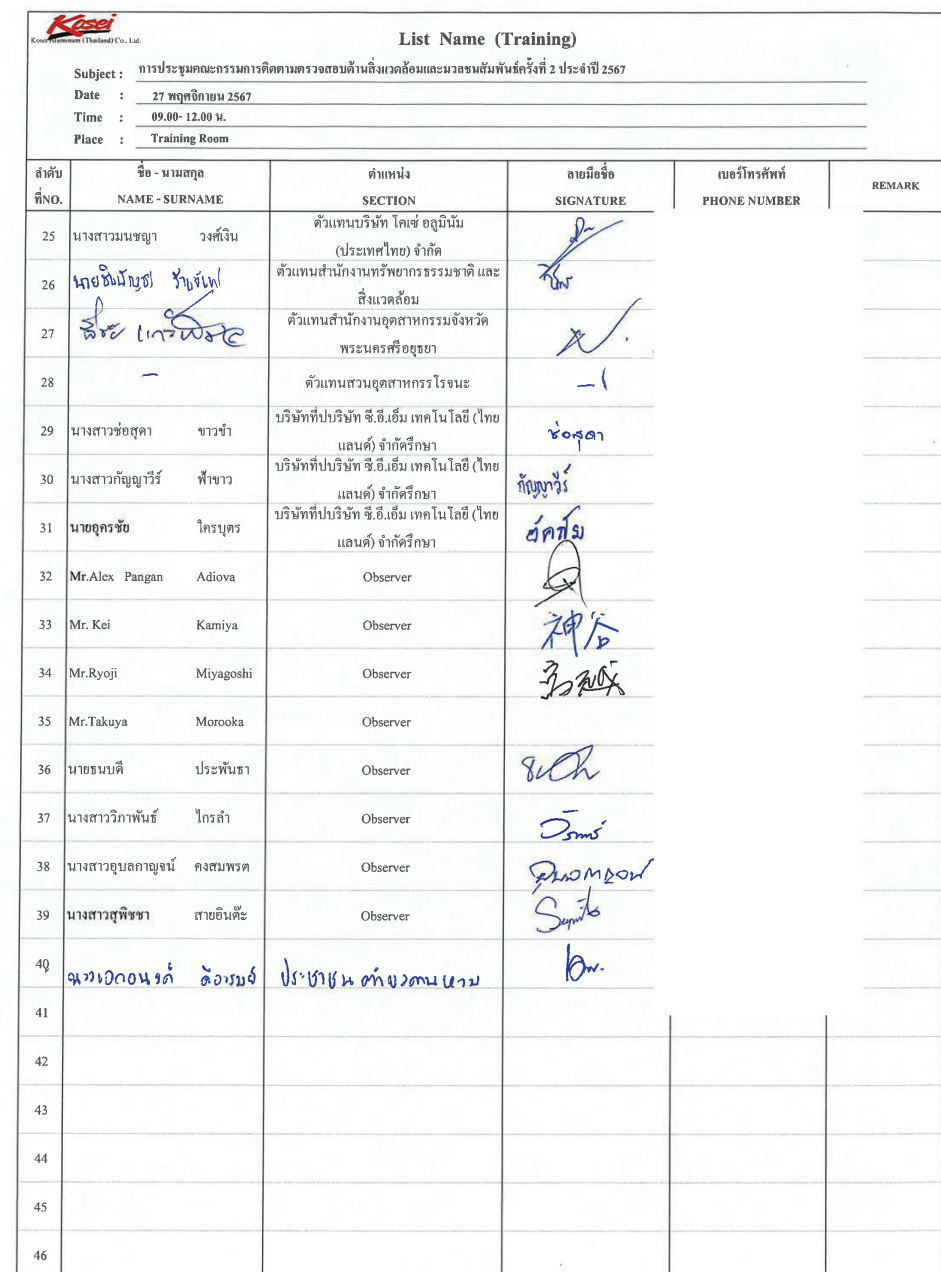 Kosei
Kosei Aluminum (Thailand) Co., Ltd.
List Name (Training)
Subject : การประชุมคณะกรรมการติดตามตรวจสอบด้านสิ่งแวดล้อมและมวลชนสัมพันธ์ครั้งที่ 2 ประจำปี 2567
Date : 27 พฤศจิกายน 2567
Time : 09.00- 12.00 น.
Place : Training Room
ลำดับ ชื่อ - นามสกุล ตำแหน่ง ลายมือชื่อ เบอร์โทรศัพท์ REMARK
ที่NO. NAME - SURNAME SECTION SIGNATURE PHONE NUMBER
25 นางสาวมนชญา วงศ์เงิน ตัวแทนบริษัท โคเซ่ อลูมินัม
(ประเทศไทย) จำกัด
26 ตัวแทนสำนักงานทรัพยากรธรรมชาติ และ
สิ่งแวดล้อม
27 ตัวแทนสำนักงานอุตสาหกรรมจังหวัด
พระนครศรีอยุธยา
28 - ตัวแทนสวนอุตสาหกรรโรจนะ
29 นางสาวช่อสุดา ขาวขำ บริษัทที่ปบริษัท ซี.อี.เอ็ม เทคโนโลยี (ไทย ช่อสุดา
แลนด์) จำกัดรึกษา
30 นางสาวกัญญาวีร์ ฟ้าขาว บริษัทที่ปบริษัท ซี.อี.เอ็ม เทคโนโลยี (ไทย กัญญาวีร์
แลนด์) จำกัดรึกษา
31 นายอุครชัย ใครบุตร บริษัทที่ปบริษัท ซี.อี.เอ็ม เทคโนโลยี (ไทย
แลนด์) จำกัดรึกษา
32 Mr.Alex Pangan Adiova Observer
33 Mr. Kei Kamiya Observer 神谷
34 Mr.Ryoji Miyagoshi Observer
35 Mr.Takuya Morooka Observer
36 นายธนบดี ประพันธา Observer
37 นางสาววิภาพันธ์ ไกรลำ Observer
38 นางสาวอุบลกาญจน์ คงสมพรต Observer
39 นางสาวสุพิชชา สายอินต๊ะ Observer
40 ประชาชน
41
42
43
44
45
46